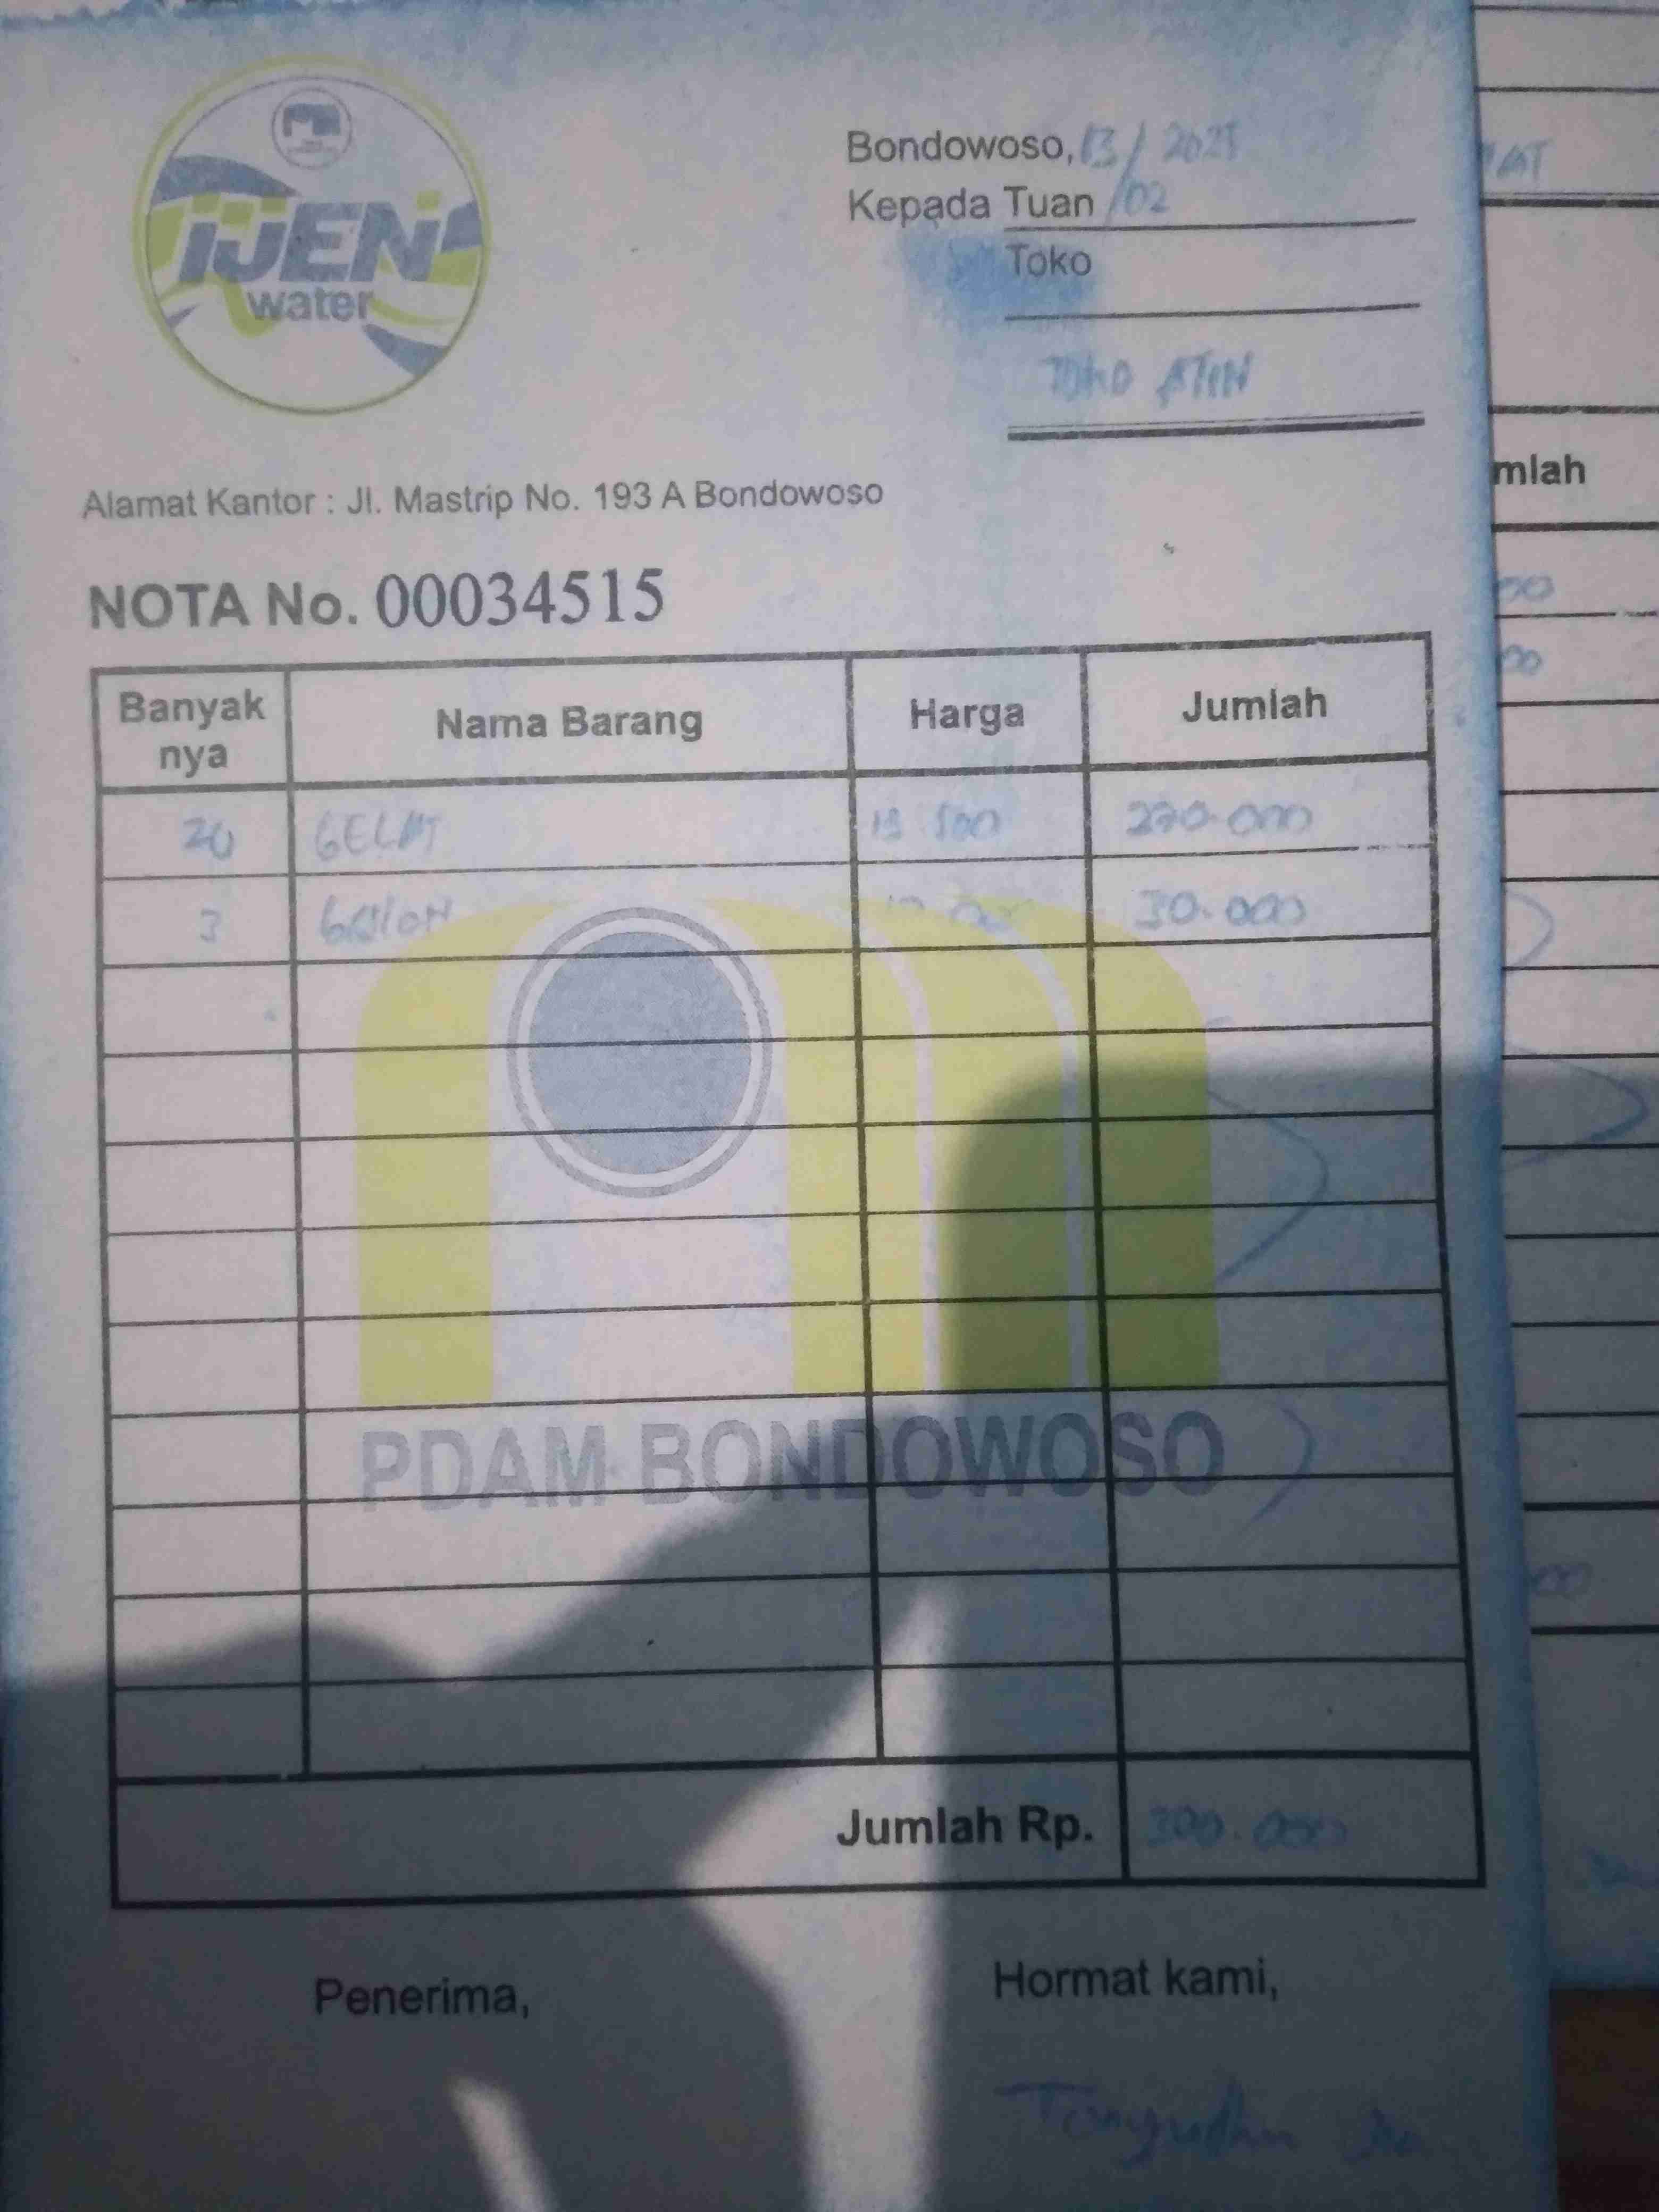 iJEN
water
Bondowoso, 13/02/2025
Kepada Tuan
Toko
TOKO ATIN
Alamat Kantor : Jl. Mastrip No. 193 A Bondowoso
NOTA No. 00034515
Banyak nya Nama Barang Harga Jumlah
20 GELAT 13 500 270.000
3 30.000
PDAM BONDOWOSO
Jumlah Rp. 300.000
Penerima, Hormat kami,
mlah